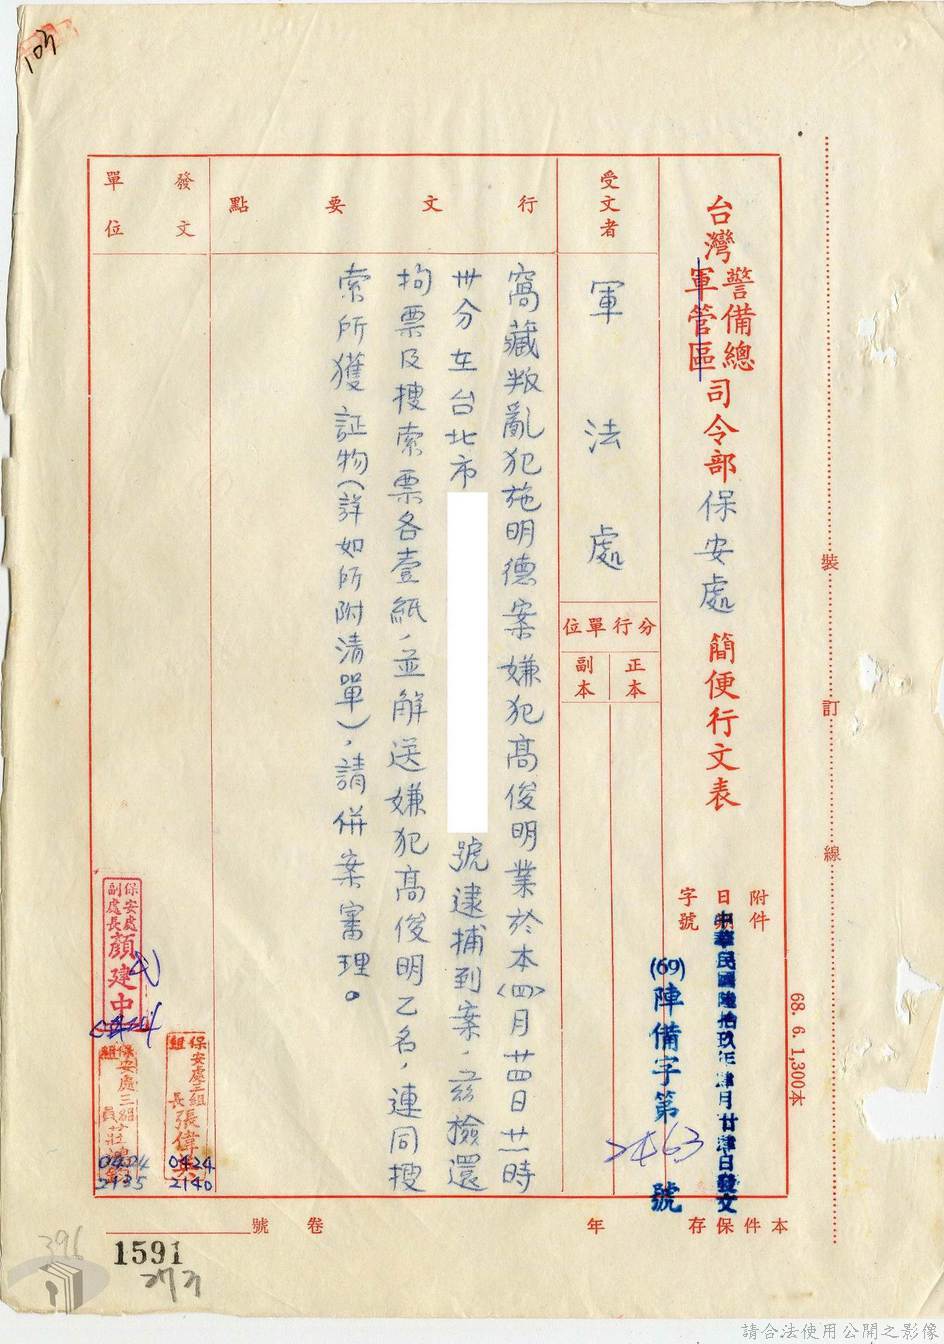 103
台灣警備總司令部保安處 簡便行文表
軍管區
附件
日期
字號
中華民國陸拾玖年肆月廿肆日發文
(69)陣備字第2463號
受文者
軍法處
分行單位
正本
副本
行文要點
窩藏叛亂犯施明德案嫌犯高俊明業於本(四)月廿四日廿一時
卅分在台北市
號逮捕到案，茲檢還
拘票及搜索票各壹紙，並解送嫌犯高俊明乙名，連同搜
索所獲証物(詳如所附清單)，請併案審理。
發文單位
保安處副處長顏建中
保安處三組組長張偉
0424
2140
保安處三組組員莊
0424
2135
68. 6. 1,300本
裝
訂
線
本件保存
年
卷
號
1591
396
請合法使用公開之影像